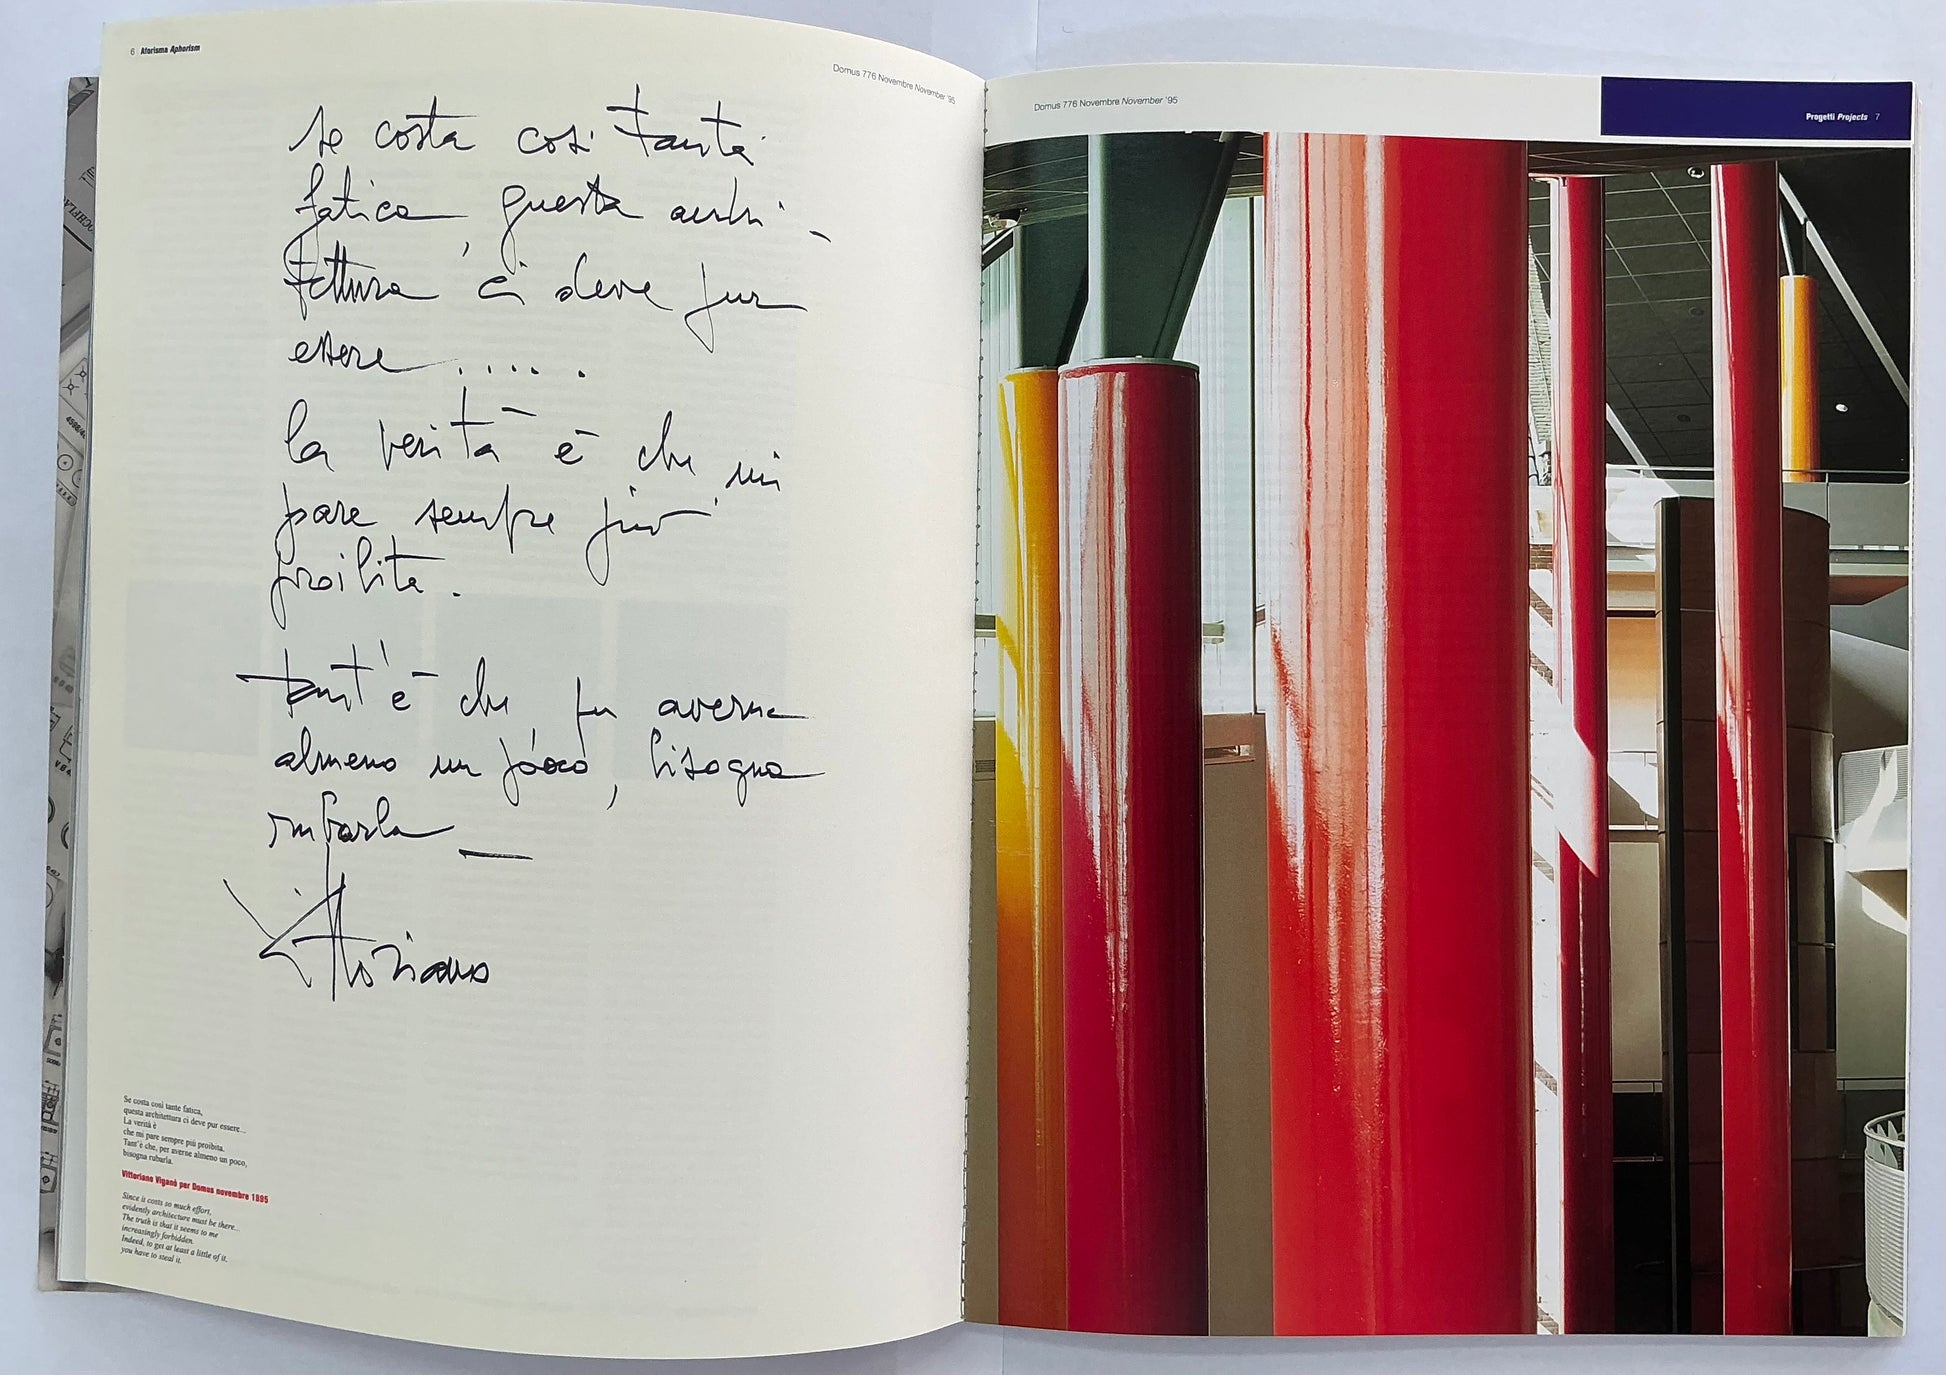 6 Aforisma Aphorism
Domus 776 Novembre November '95
se costa così tante
fatica, questa archi-
tettura ci deve pur
essere .....
la verità è che mi
pare sempre più
proibita.
tant'è che per averne
almeno un poco, bisogna
rubarla
Vittoriano
Se costa così tante fatica,
questa architettura ci deve pur essere...
La verità è
che mi pare sempre più proibita.
Tant'è che, per averne almeno un poco,
bisogna rubarla.
Vittoriano Viganò per Domus novembre 1995
Since it costs so much effort,
evidently architecture must be there...
The truth is that it seems to me
increasingly forbidden.
Indeed, to get at least a little of it,
you have to steal it.
Domus 776 Novembre November '95
Progetti Projects 7